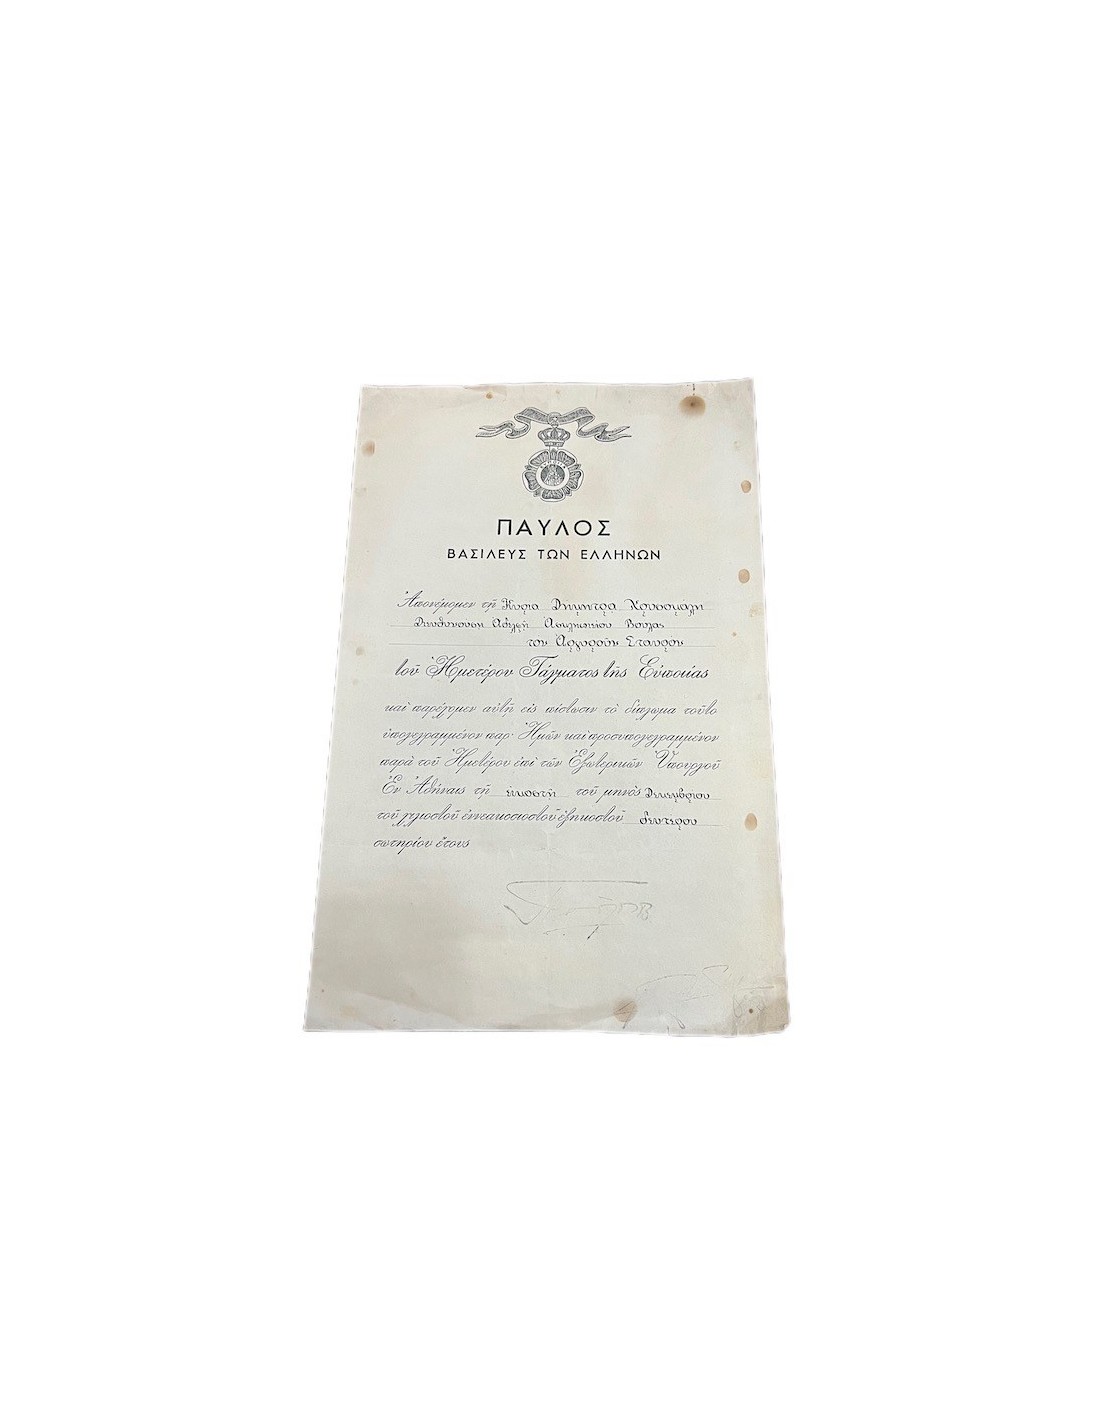 ΠΑΥΛΟΣ
ΒΑΣΙΛΕΥΣ ΤΩΝ ΕΛΛΗΝΩΝ
Ἀπονέμομεν τῇ Κυρία Δήμητρα Κρυσομάλη
Διευθύνουση Ἀδελφῇ Ἀσκληπιείου Βούλας
τὸν Ἀργυροῦν Σταυρὸν
τοῦ Ἡμετέρου Τάγματος τῆς Εὐποιΐας
καὶ παρέχομεν αὐτῇ εἰς πίστωσιν τὸ δίπλωμα τοῦτο
ὑπογεγραμμένον παρ' Ἡμῶν καὶ προσυπογεγραμμένον
παρὰ τοῦ Ἡμετέρου ἐπὶ τῶν Ἐξωτερικῶν Ὑπουργοῦ
Ἐν Ἀθήναις τῇ εἰκοστῇ τοῦ μηνὸς Δεκεμβρίου
τοῦ χιλιοστοῦ ἐννεακοσιοστοῦ ἑξηκοστοῦ δευτέρου
σωτηρίου ἔτους